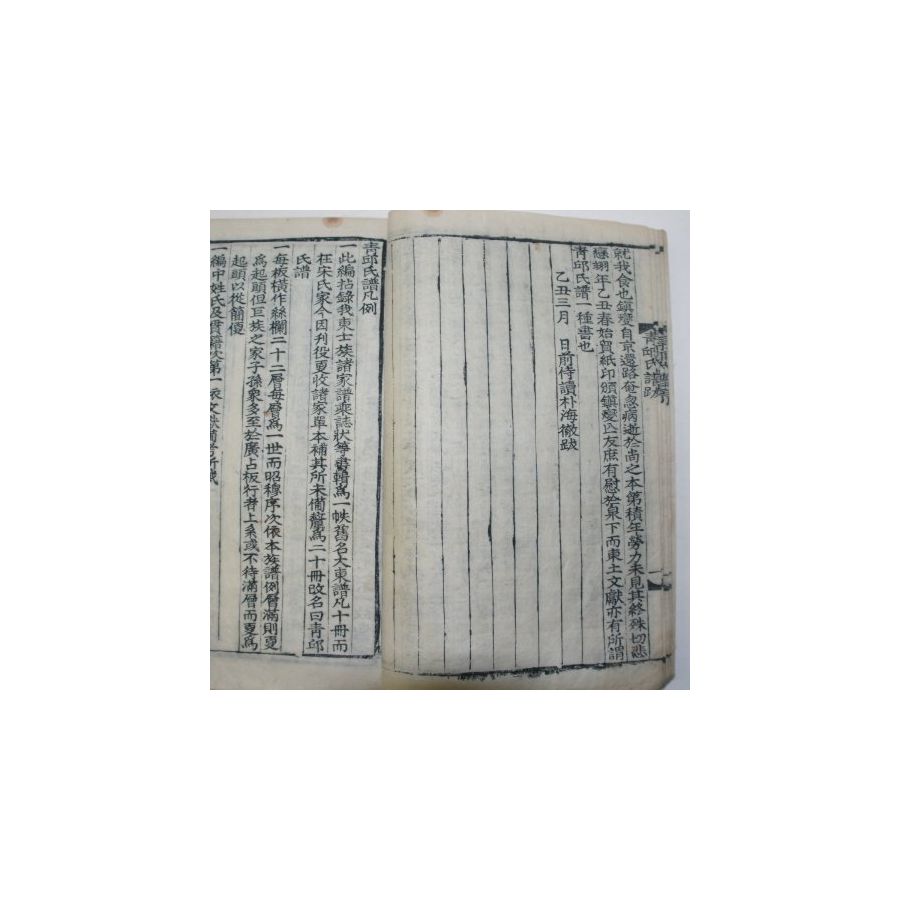 就我食也鎭燮自京還路奄忽病逝於尚之本第積年勞力未見其終殊切悲
戀翊年乙丑春始貿紙印頒鎭燮亡友庶有慰於泉下而東土文獻亦有所謂
靑邱氏譜一種書也
乙丑三月 日前侍讀朴海徹跋
靑邱氏譜跋
靑邱氏譜凡例
一此編拈錄我東士族諸家譜乘誌狀等書輯爲一帙舊名大東譜凡十冊而
在宋氏家今因刊役更收諸家單本補其所未備釐爲二十冊改名曰靑邱
氏譜
一每板橫作絲欄二十二層每層爲一世而昭穆序次依本族譜例層滿則更
爲起頭但巨族之家子孫衆多至於廣占板行者上系或不待滿層而更爲
起頭以從簡便
一編中姓氏及貫籍次第一依文獻備考所載